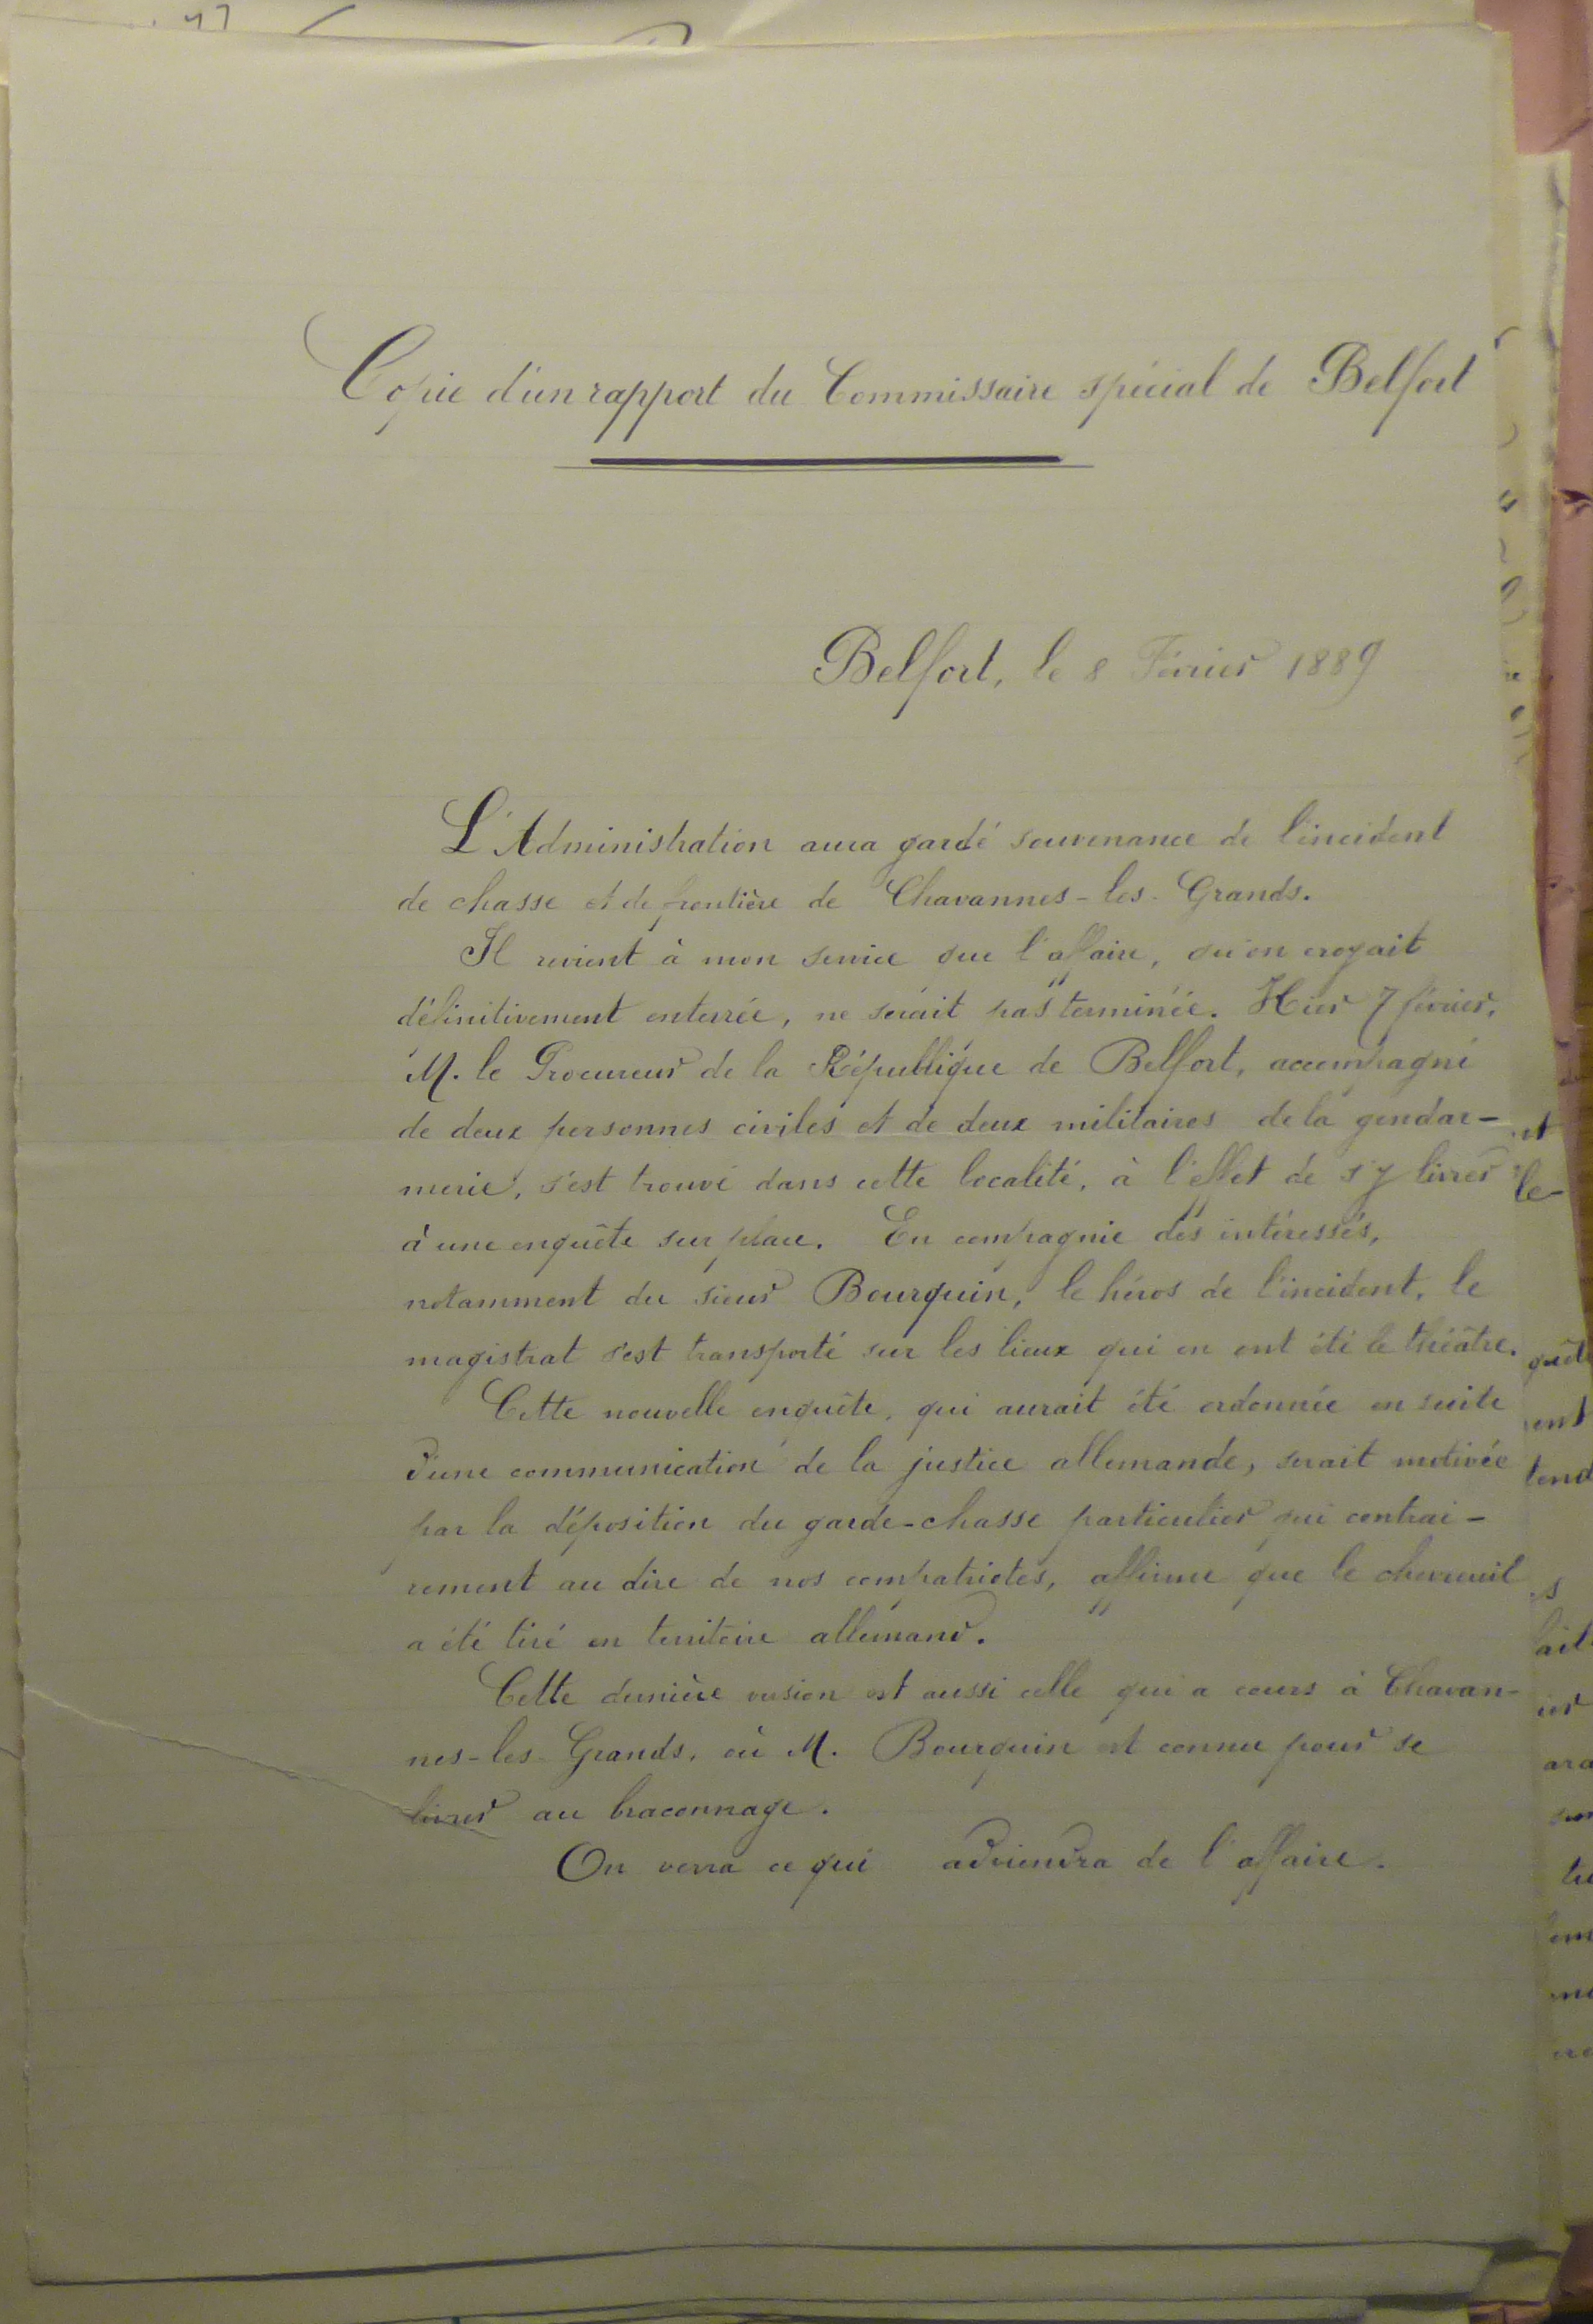 Copie d'un rapport du Commissaire spécial de Belfort
Belfort, le 8 Février 1889
L'Administration aura gardé souvenance de l'incident
de chasse et de frontière de Chavannes-les-Grands.
Il revient à mon service que l'affaire, qu'on croyait
définitivement enterrée, ne serait pas terminée. Hier 7 février,
M. le Procureur de la République de Belfort, accompagné
de deux personnes civiles et de deux militaires de la gendar-
merie, s'est trouvé dans cette localité, à l'effet de s'y livrer
à une enquête sur place. En compagnie des intéressés,
notamment du sieur Bourquin, le héros de l'incident, le
magistrat s'est transporté sur les lieux qui en ont été le théâtre.
Cette nouvelle enquête, qui aurait été ordonnée en suite
d'une communication de la justice allemande, serait motivée
par la déposition du garde-chasse particulier qui contrai-
rement au dire de nos compatriotes, affirme que le chevreuil
a été tiré en territoire allemand.
Cette dernière version est aussi celle qui a cours à Chavan-
nes-les-Grands, où M. Bourquin est connu pour se
livrer au braconnage.
On verra ce qui adviendra de l'affaire.